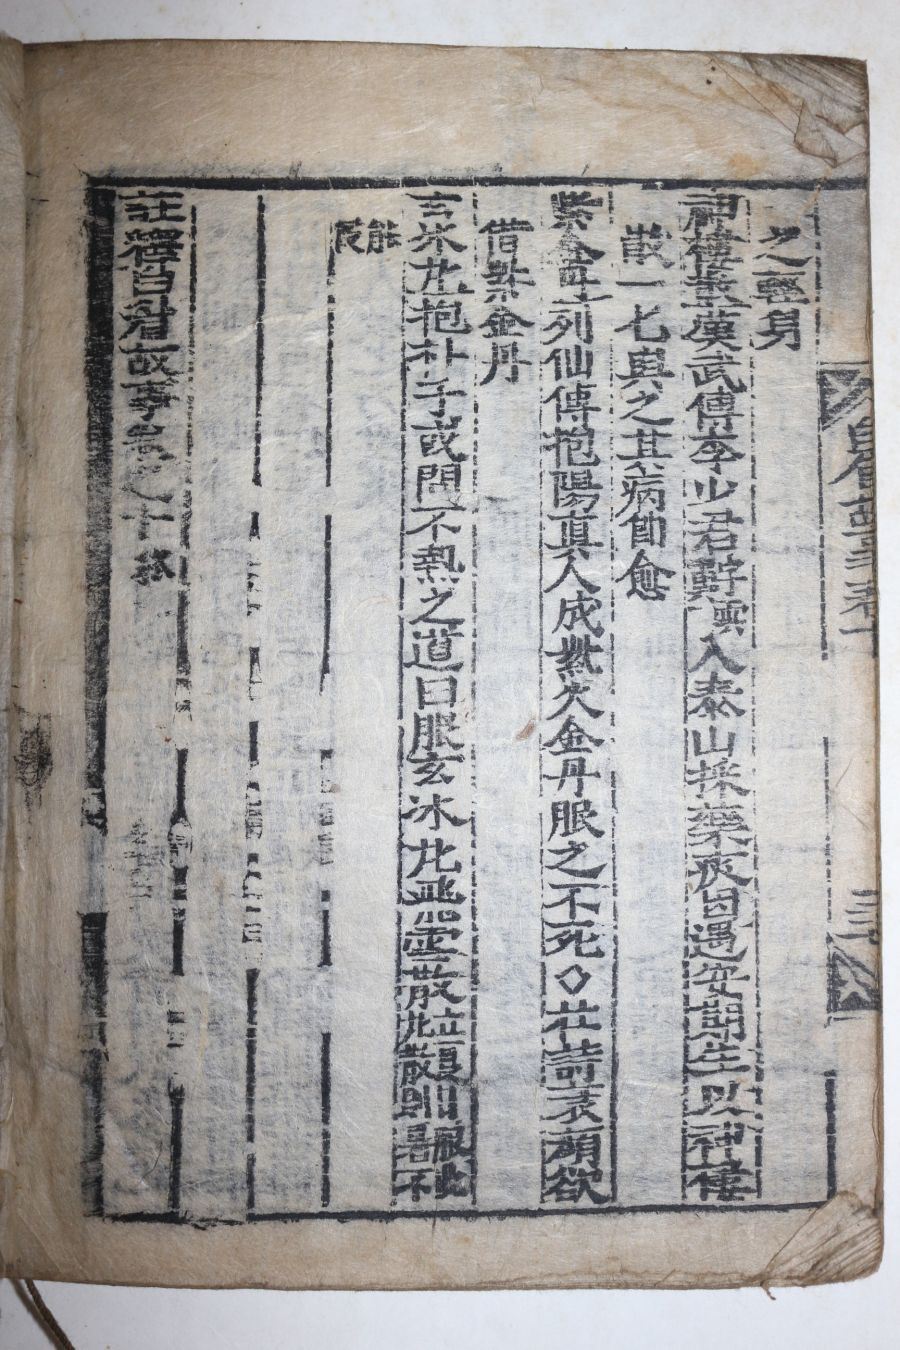 之輕身
神樓藥漢武傳李少君辭入泰山採藥夜因遇安期生以神樓
散一匕與之其病卽愈
紫金丹列仙傳抱陽眞人成金丹服之不死◇杜詩衰顔欲
借紫金丹
玄氷丸抱朴子或問不熱之道曰服玄冰丸飛雪散暑不
能
註釋白眉故事卷之十終
眉故事卷十